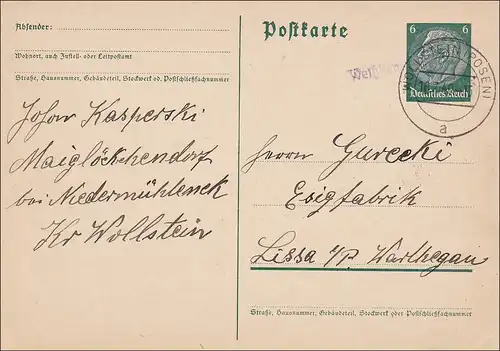 Absender:
Wohnort, auch Zustell- oder Leitpostamt
Straße, Hausnummer, Gebäudeteil, Stockwerk od. Postschließfachnummer
Johan Kasperski
Maiglöckchendorf
bei Niedermühleneck
Kr Wollstein
Postkarte
6 6
Deutsches Reich
WOLLSTEIN (POSEN)
a
Herrn Gurecki
Esigfabrik
Lissa i/p Warthegau
Straße, Hausnummer, Gebäudeteil, Stockwerk oder Postschließfachnummer